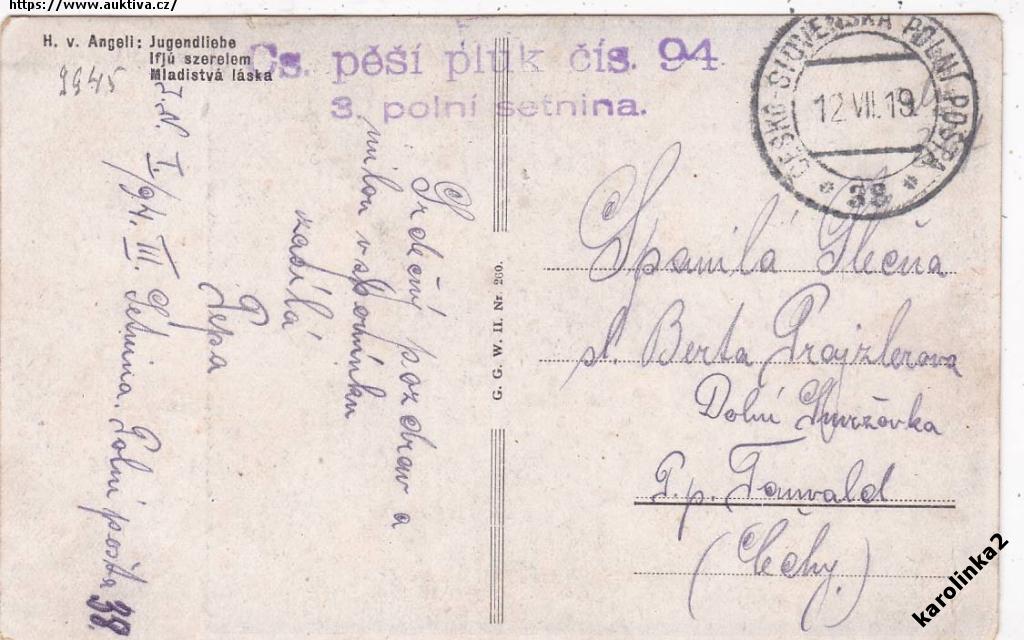 https://www.auktiva.cz/
H. v. Angeli: Jugendliebe
Ifjú szerelem
Mladistvá láska
2945
Čs. pěší pluk čís. 94
3. polní setnina.
ČESKO-SLOVENSKÁ POLNÍ POŠTA
12 VII. 19
* 38 *
Srdečný pozdrav a
milou vzpomínku
zasílá
Pepa
I./94. III. Setnina. Polní pošta 38.
G. G. W. II. Nr. 260.
Spanilá Slečna
sl. Berta Prajzlerova
Dolní Smržovka
P. p. Tanvald
(Čechy)
karolinka2